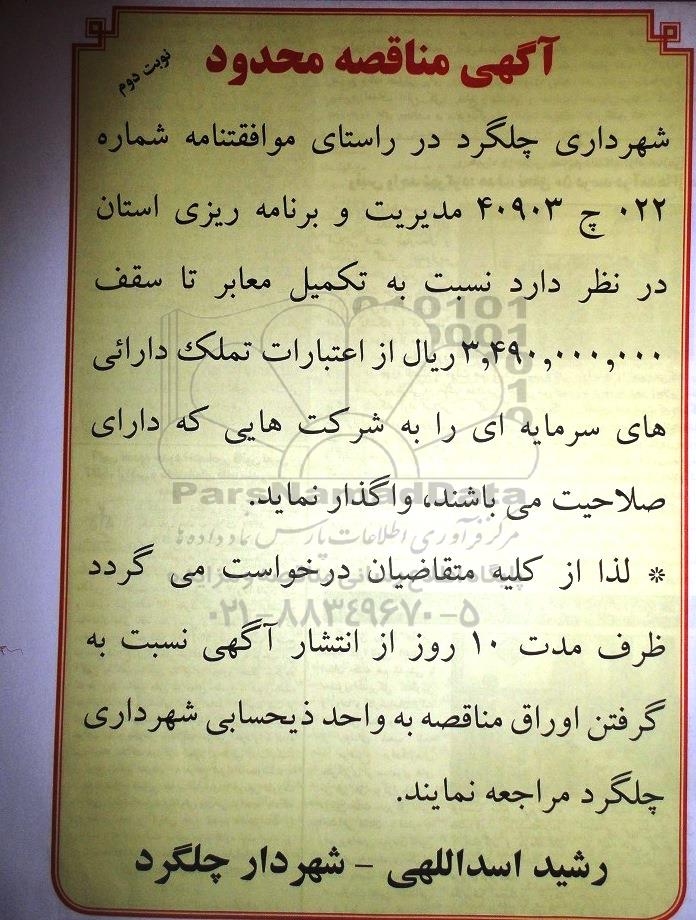 آگهی مناقصه محدود
نوبت دوم
شهرداری چلگرد در راستای موافقتنامه شماره
۰۲۲ ج ۴۰۹۰۳ مدیریت و برنامه ریزی استان
در نظر دارد نسبت به تکمیل معابر تا سقف
۳,۴۹۰,۰۰۰,۰۰۰ ریال از اعتبارات تملک دارائی
های سرمایه ای را به شرکت هایی که دارای
صلاحیت می باشند، واگذار نماید.
* لذا از کلیه متقاضیان درخواست می گردد
ظرف مدت ۱۰ روز از انتشار آگهی نسبت به
گرفتن اوراق مناقصه به واحد ذیحسابی شهرداری
چلگرد مراجعه نمایند.
رشید اسداللهی - شهردار چلگرد
ParsNamadData
مرکز فرآوری اطلاعات پارس نماد داده ها
۰۲۱-۸۸۳۴۹۶۷۰-۵